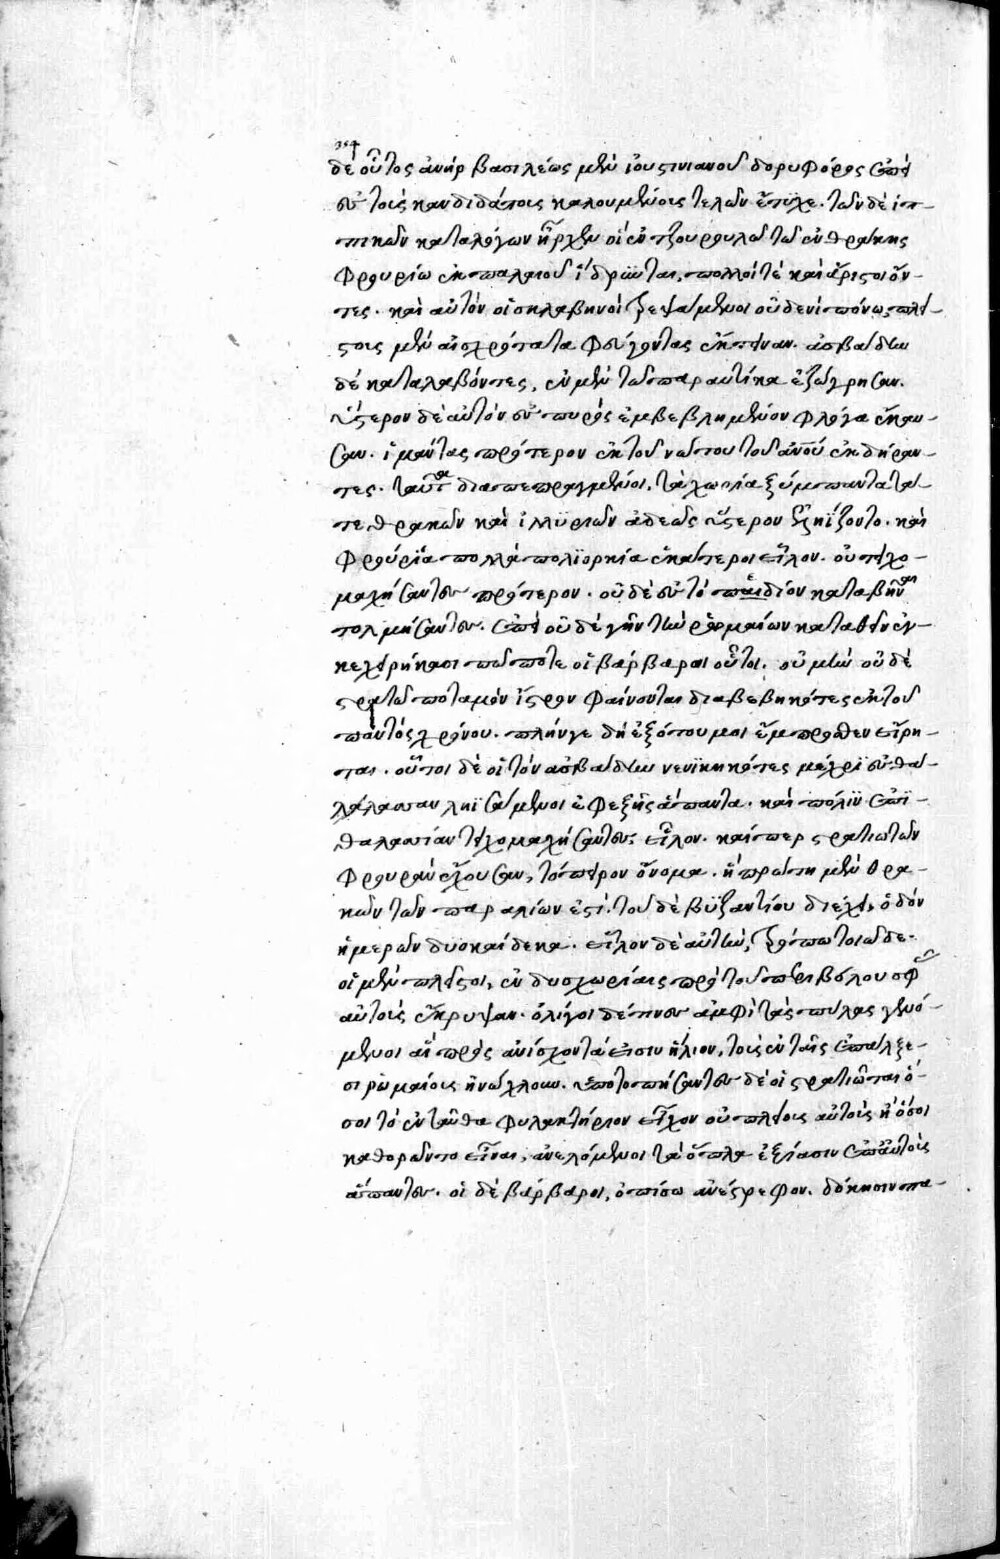 δὲ οὗτος ἀνὴρ βασιλέως μὲν ἰουστινιανοῦ δορυφόρος ἐπεὶ
ἐν τοῖς κανδιδάτοις καλουμένοις τελῶν ἔτυχε. τῶν δὲ ἱπ-
πικῶν καταλόγων ἦρχεν οἳ ἐν τζουρουλῶ τῶ ἐν θράκης
φρουρίω ἐκ παλαιοῦ ἵδρυνται, πολλοί τε καὶ ἄριστοι ὄν-
τες. καὶ αὐτὸν οἱ σκλαβηνοὶ τρεψάμενοι οὐδενὶ πόνω, πλεί-
στους μὲν αἰσχρότατα φεύγοντας ἔκτειναν. ἀσβαδον
δὲ καταλαβόντες, ἐν μὲν τῶ παραυτίκα ἐζώγρησαν.
ὕστερον δὲ αὐτὸν ἐν πυρὸς ἐμβεβλημένον φλόγα ἔκαυ-
σαν. ἱμάντας πρότερον ἐκ τοῦ νώτου τοῦ ἀνου ἐκδήραν-
τες. ταῦτα διαπεπραγμένοι, τὰ χωρία ξύμπαντα τά
τε θρακῶν καὶ ἰλλυριῶν ἀδεῶς ὕστερον ἐληΐζοντο. καὶ
φρούρια πολλὰ πολιορκία ἑκάτεροι εἷλον. οὐ τειχο-
μαχήσαντες πρότερον. οὐδὲ ἐν τὸ πεδίον καταβῆναι
τολμήσαντες. ἐπεὶ οὐδὲ γῆν τῶν ῥωμαίων καταθεῖν ἐγ-
κεχειρήκασι πώποτε οἱ βάρβαροι οὗτοι. οὐ μὴν οὐδὲ
στρατῶ ποταμὸν ἴστρον φαίνονται διαβεβηκότες ἐκ τοῦ
παντὸς χρόνου. πλήν γε δὴ ἐξ ὅτου μοι ἔμπροσθεν εἴρη-
ται. οὗτοι δὲ οἱ τὸν ἀσβαδον νενικηκότες μέχρι ἐν θα-
λάλασσαν ληϊσάμενοι ἐφεξῆς ἅπαντα. καὶ πόλιν ἐπι-
θαλασσίαν τειχομαχήσαντες, εἷλον. καίπερ στρατιωτῶν
φρουρὰν ἔχουσαν, τόπειρον ὄνομα. ἣ πρώτη μὲν θρα-
κῶν τῶν παραλίων ἐστί. τοῦ δὲ βυζαντίου διέχει, ὁδὸν
ἡμερῶν δυοκαίδεκα. εἷλον δὲ αὐτὴν, τρόπω τοιῶδε.
οἱ μὲν πλεῖστοι, ἐν δυσχωρίαις πρὸ τοῦ περιβόλου σφᾶς
αὐτοὺς ἔκρυψαν. ὀλίγοι δέ τινες ἀμφὶ τὰς πύλας γενό-
μενοι αἳ πρὸς ἀνίσχοντά εἰσιν ἥλιον, τοὺς ἐν ταῖς ἐπάλξε-
σι ρωμαίους ἠνώχλουν. ὑποτοπήσαντες δὲ οἱ στρατιῶται ὅ-
σοι τὸ ἐνταῦθα φυλακτήριον εἶχον οὐ πλείους αὐτοὺς ἢ ὅσοι
καθορῶντο εἶναι, ἀνελόμενοι τὰ ὅπλα ἐξίασιν ἐπ' αὐτοὺς
ἅπαντες. οἱ δὲ βάρβαροι, ὀπίσω ἀνέστρεφον. δόκησιν πα-